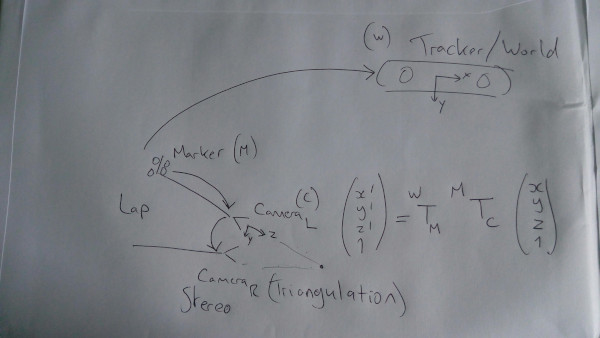 (W) Tracker/World
O x O
y
Marker (M)
Lap
(C)
Camera L
y z
x' y' z' 1 = W T M M T C x y z 1
Camera R (Triangulation)
Stereo